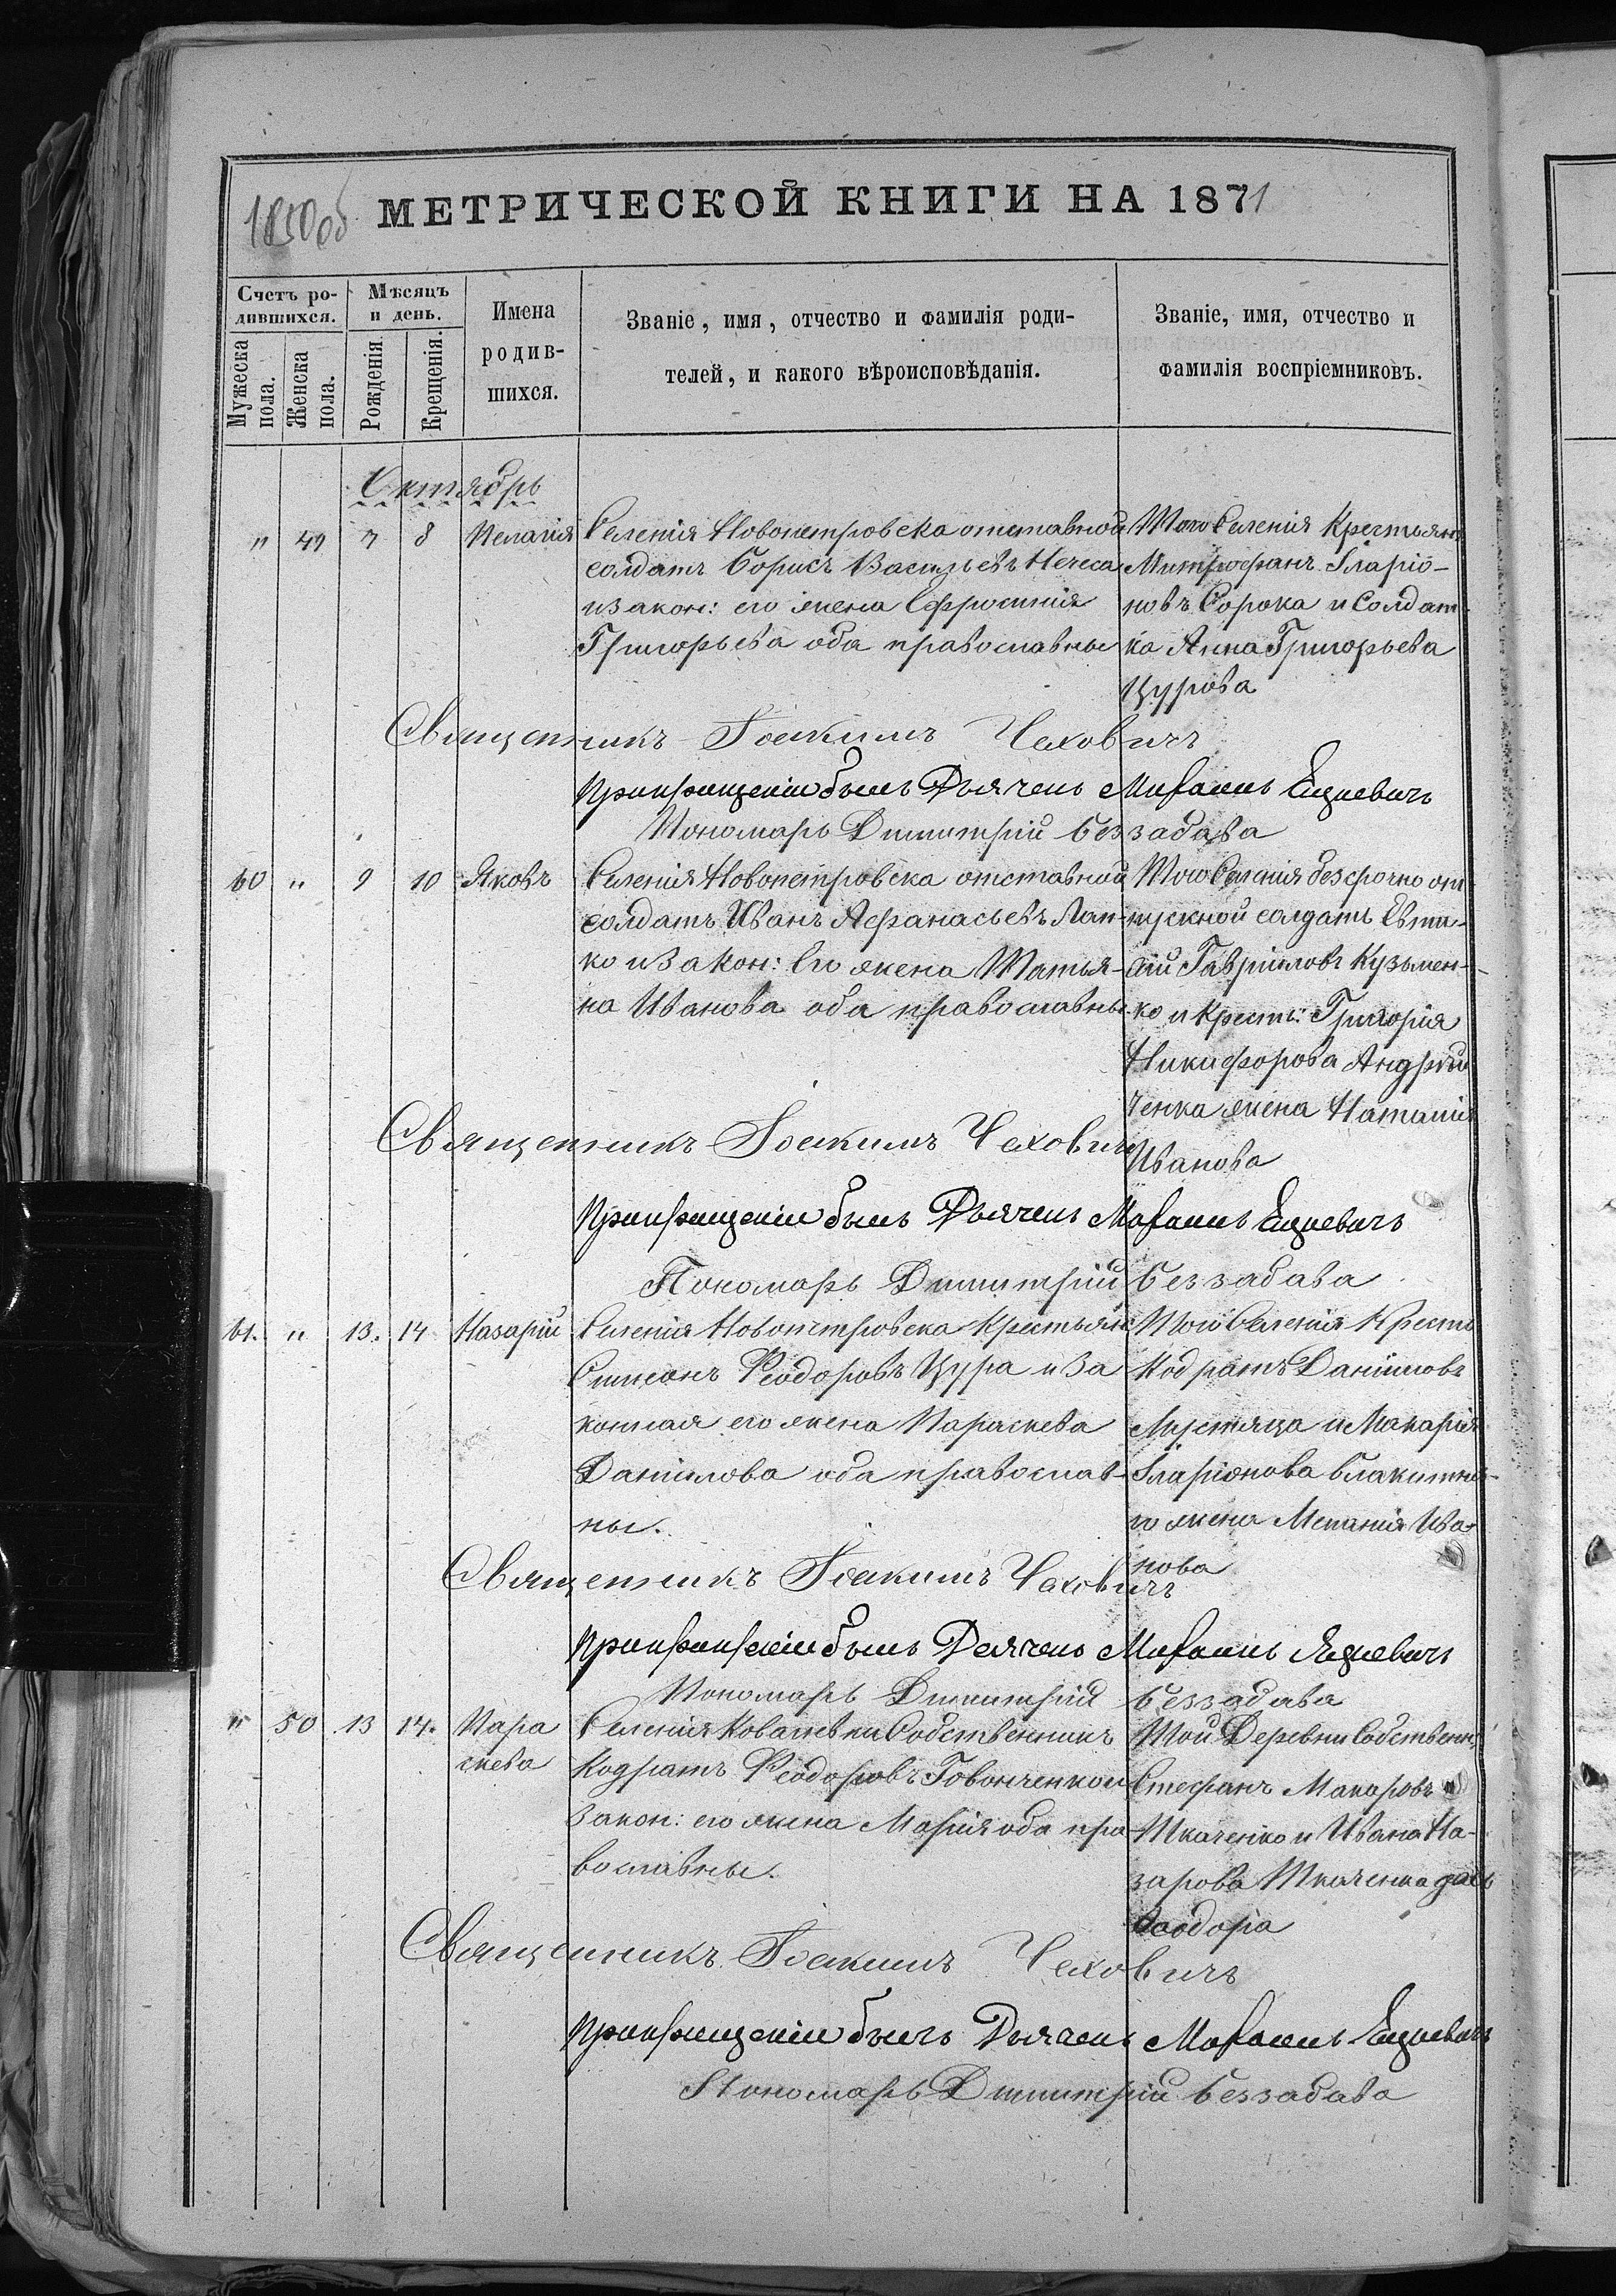 1850об МЕТРИЧЕСКОЙ КНИГИ НА 1871
Счетъ ро-
дившихся.
Мужеска
пола.
Женска
пола.
Мѣсяцъ
и день.
Рожденія.
Крещенія.
Имена
родив-
шихся.
Званіе, имя, отчество и фамилія роди-
телей, и какого вѣроисповѣданія.
Званіе, имя, отчество и
фамилія воспріемниковъ.
Октябрь
" 49 7 8 Пелагія
Селенія Новопетровска отставной
солдатъ Борисъ Васильевъ Нечеса
и закон: его жена Ефросинія
Григорьева оба православные
Того Селенія Крестьян
Митрофанъ Иларіо-
новъ Сорока и Солдат-
ка Анна Григорьева
Цурова
Священникъ Іоакимъ Чеховичъ
При крещеніи былъ Дьячекъ Михаилъ Ещиевичъ
Пономарь Димитрій Беззабава
60 " 9 10 Яковъ
Селенія Новопетровска отставной
солдатъ Иванъ Афанасьевъ Лап-
ко и закон: Его жена Татья-
на Иванова оба православные
Того Селенія безсрочно от
пускной солдатъ Евта-
фій Гавріиловъ Кузьмен-
ко и крест: Григорія
Никифорова Андрій
ченка жена Наталія
Иванова
Священникъ Іоакимъ Чеховичъ
При крещеніи былъ Дьячекъ Михаилъ Ещиевичъ
Пономарь Димитрій Беззабава
61. " 13. 14 Назарій
Селенія Новопетровска Крестьян
Симеонъ Феодоровъ Цура и за
конная его жена Параскева
Даніилова оба православ-
ны.
Того Селенія Крестъ
Кодратъ Даніиловъ
и Макарія
Иларіонова Блакитна-
го жена Меланія Ива-
нова
Священникъ Іоакимъ Чеховичъ
При крещеніи былъ Дьячекъ Михаилъ Ящиевичъ
Пономарь Димитрій Беззабава
" 50 13 14. Пара
скева
Селенія Ковалевки Собственникъ
Кодратъ Феодоровъ и
закон: его жена Марія оба пра
вославны.
Той Деревни Собственн:
Стефанъ Макаровъ
Ткаченко и Ивана На-
зарова Ткаченка дочь
Феодора
Священникъ Іоакимъ Чеховичъ
При крещеніи былъ Дьячекъ Михаилъ Ещиевичъ
Пономарь Димитрій Беззабава